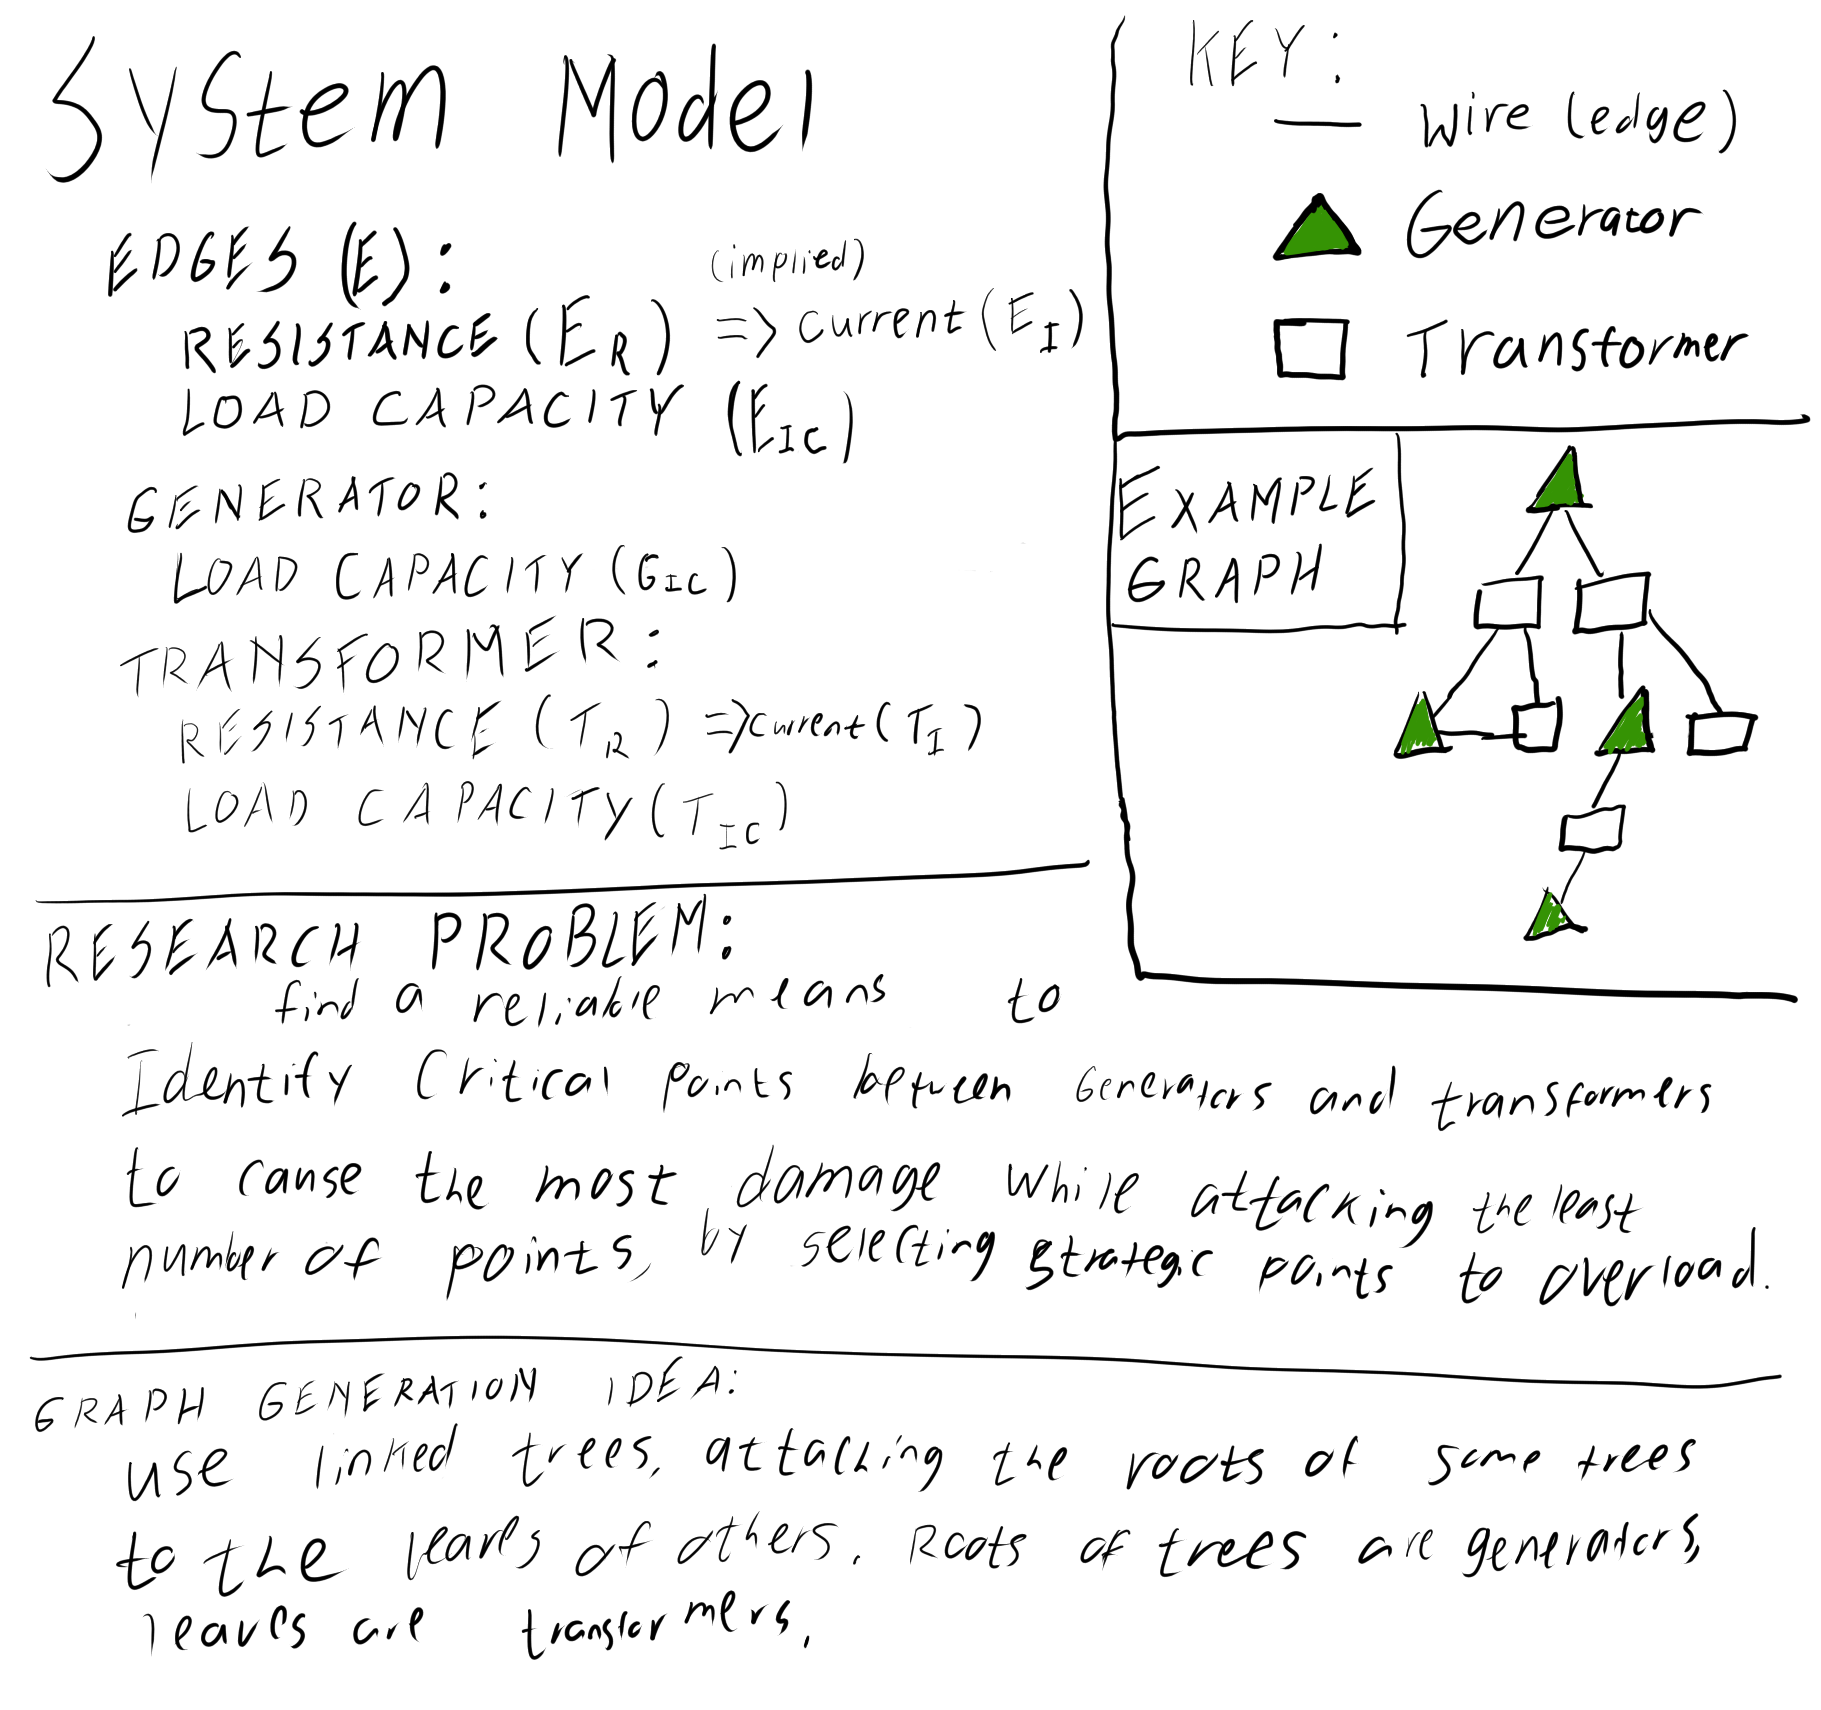 System Model
EDGES (E):
(implied)
RESISTANCE (E_R) => current (E_I)
LOAD CAPACITY (E_IC)
GENERATOR:
LOAD CAPACITY (G_IC)
TRANSFORMER:
RESISTANCE (T_R) => current (T_I)
LOAD CAPACITY (T_IC)
KEY:
Wire (edge)
Generator
Transformer
EXAMPLE
GRAPH
RESEARCH PROBLEM:
find a reliable means to
Identify Critical points between Generators and transformers
to cause the most damage while attacking the least
number of points, by selecting strategic points to overload.
GRAPH GENERATION IDEA:
use linked trees, attaching the roots of some trees
to the leaves of others. Roots of trees are generators,
leaves are transformers.